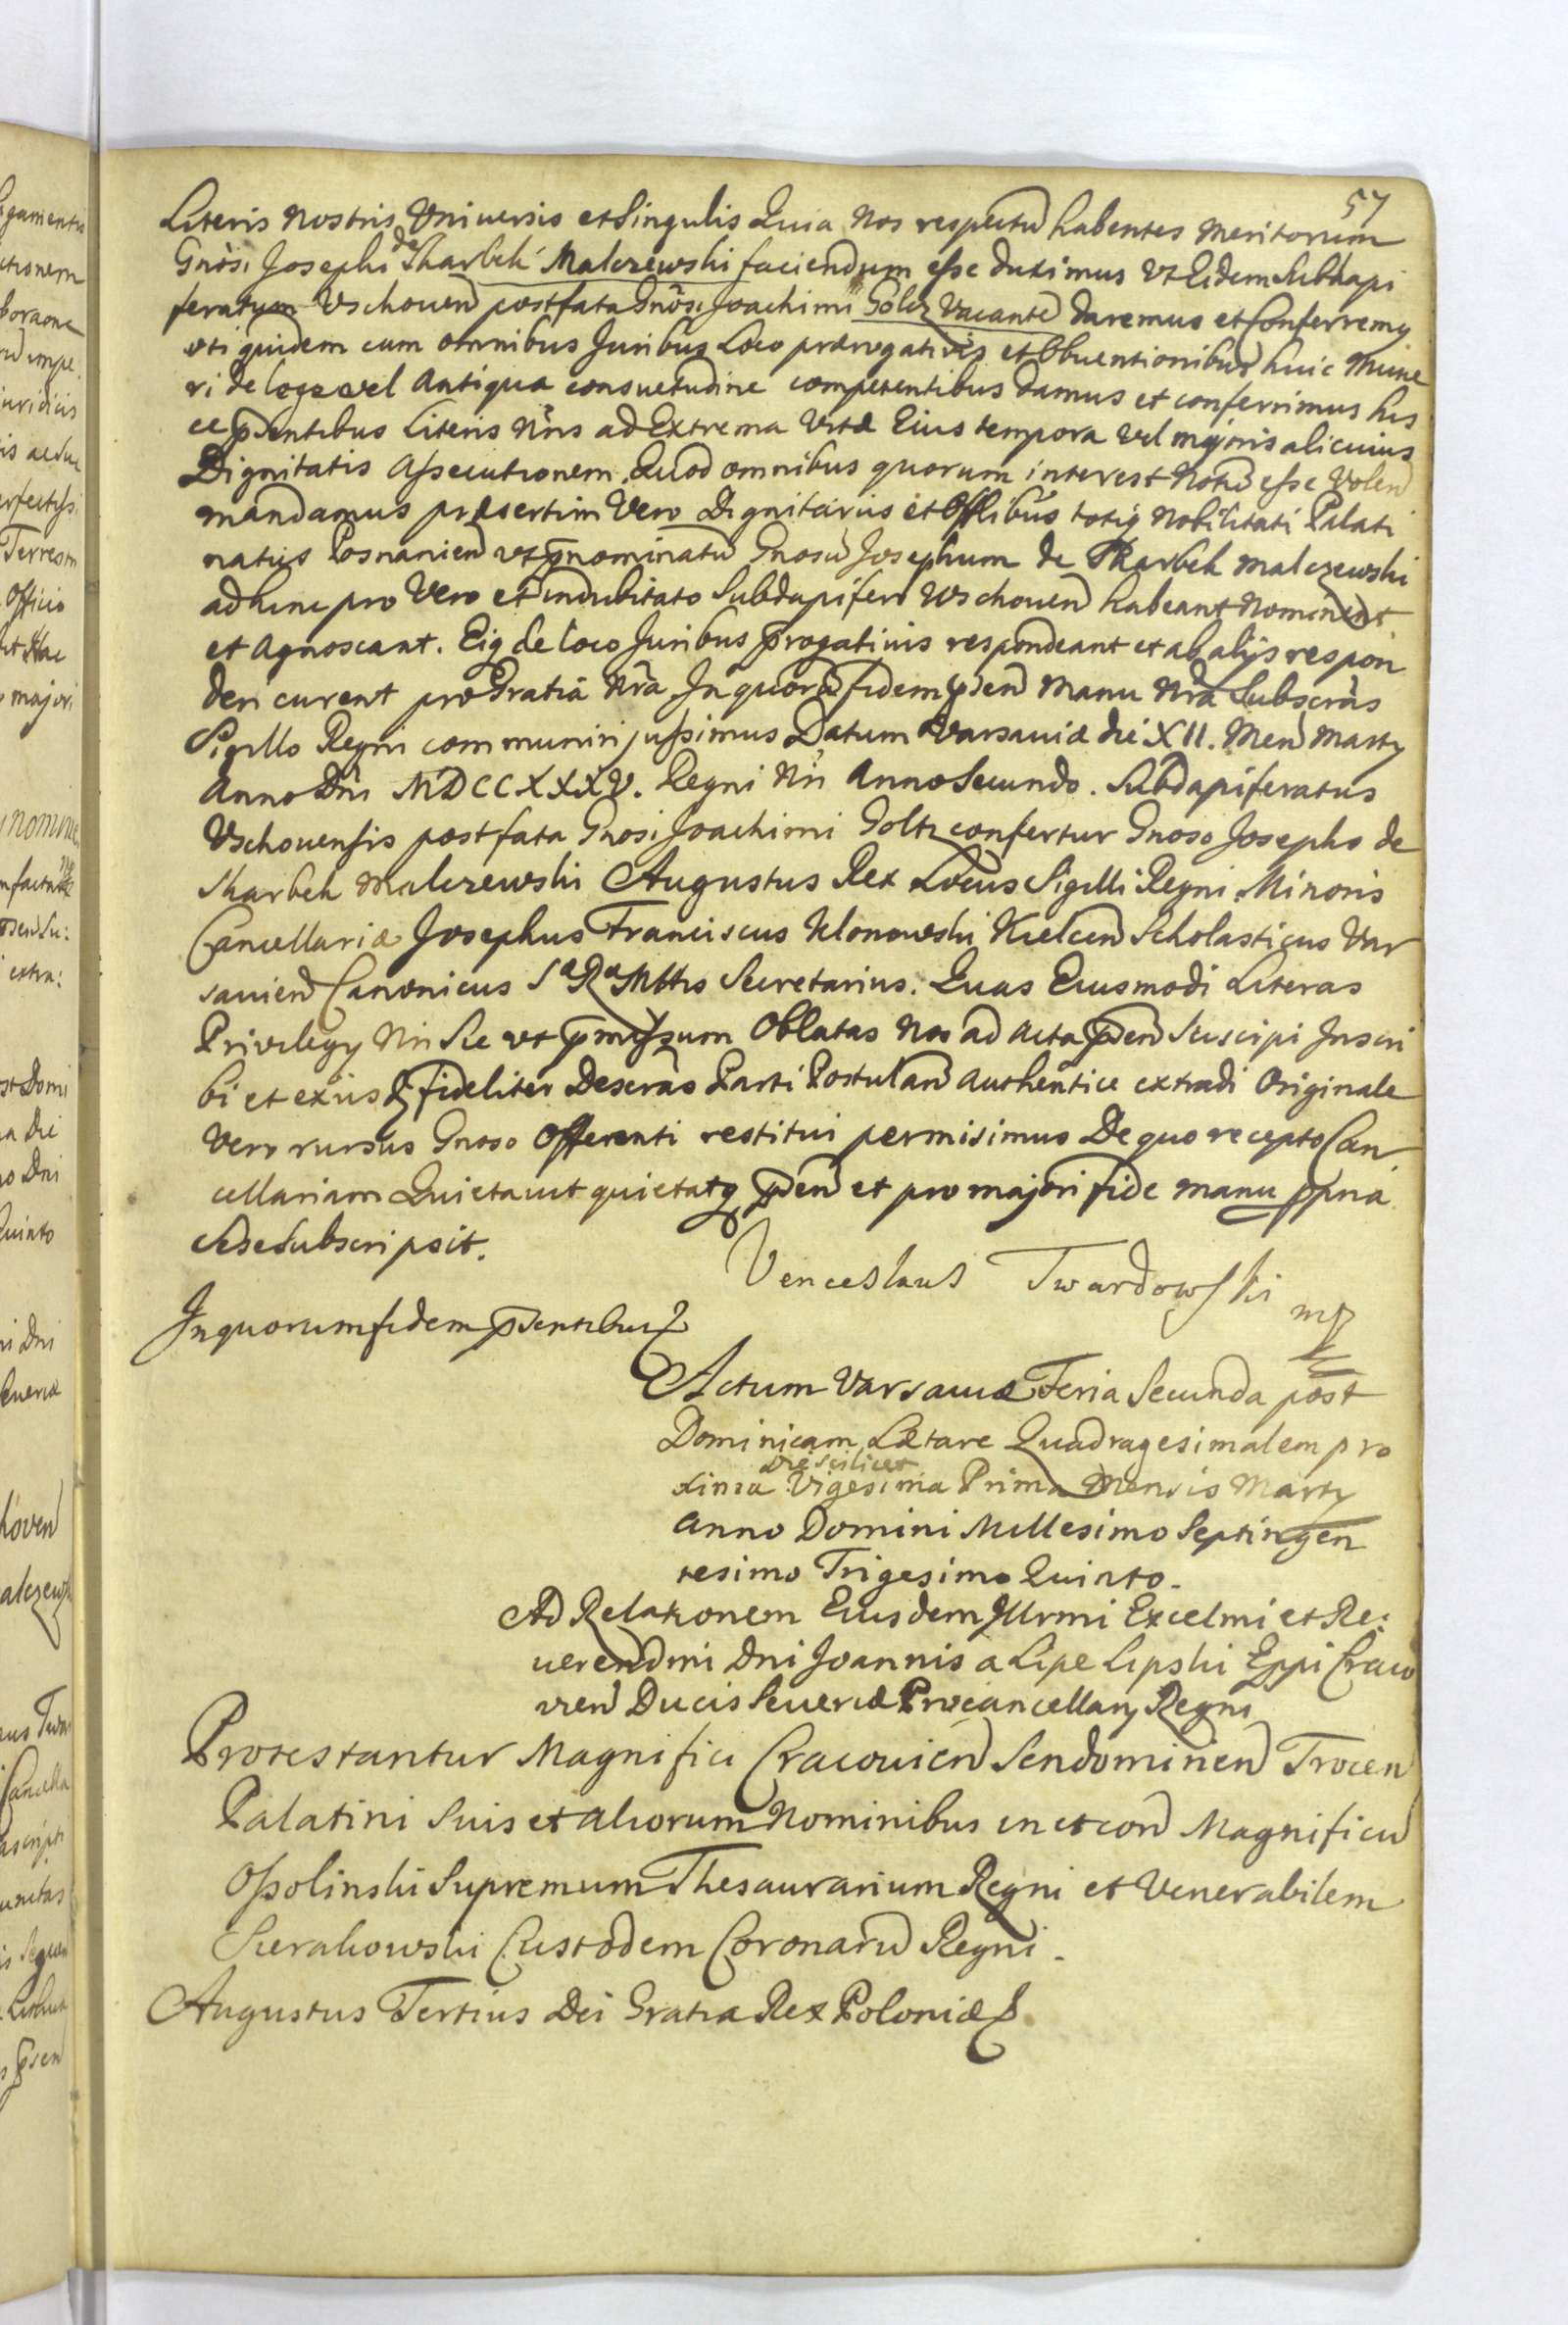 57
Literis nostris Vniuersis et Singulis Quia Nos respectū habentes Meritorum
Gnosi Josephi de Skarbek Malczewski faciendum esse duximus Vt Eidem Subdapi
feratum Vschouen postfata Gnosi Joachimi Goltz Vacantē daremus et Conferremq
uti quidem cum omnibus Juribus Loco prærogativis et Obuentionibus huic Mune
ri de lege vel Antiqua consuetudine competentibus damus et conferimus his
ce psentibus Literis Nris ad Extrema Vitæ Eius tempora vel majoris alicuius
Dignitatis Assecutionem. Quod omnibus quorum interest Notū esse Volen
mandamus præsertim Vero Dignitariis et Offlibus totiq Nobilitati Palati
natus Posnanien vt pnominatū Gnosū Josephum de Skarbek Malczewski
ad hinc pro Vero et indubitato Subdapifero Wschouen habeant Nominent
et Agnoscant. Eiq de loco Juribus progativis respondeant et ab alijs respon
deri curent pro Gratia Nra In quorū fidem psen Manu Nra Subscras
Sigillo Regni communiri jussimus Datum Varsauiæ die XII. Men Marty
Anno Dni MDCCXXXV. Regni Nri Anno Secundo. Subdapiferatus
Vschouensis post fata Gnosi Joachimi Goltz confertur Gnoso Josepho de
Skarbek Malczewski Augustus Rex Locus Sigilli Regni Minoris
Cancellariæ Josephus Franciscus Klonowski Kielcen Scholasticus Var
sauien Canonicus Sa Ra Mttis Secretarius. Quas Eiusmodi Literas
Privilegy Nri Se vt pmissum Oblatas Nos ad Acta psen Suscipi Inscri
bi et exijs fideliter Descras Parti Postulan Authentice extradi Originale
Vero rursus Gnoso Offerenti restitui permisimus De quo recepto Can
cellariam Quietauit quietatq psen et pro majori fide manu ppria
Sese Subscripsit.
Venceslaus Twardowski mp
In quorum fidem psentibus
Actum Varsauiæ Feria Secunda post
Dominicam Lætare Quadragesimalem pro
die scilicet
xima Vigesima Prima Mensis Marty
Anno Domini Millesimo Septingen
tesimo Trigesimo Quinto.
Ad Relationem Eiusdem Illrmi Excelmi et Re:
uerendmi Dni Joannis a Lipe Lipski Eppi Craco
vien Ducis Seueriæ Procancellarij Regni
Protestantur Magnifici Cracouien Sendomirien Trocen
Palatini Suis et aliorum Nominibus in et con Magnificū
Ossolinski Supremum Thesaurarium Regni et Venerabilem
Sierakowski Custodem Coronarū Regni.
Augustus Tertius Dei Gratia Rex Poloniæ